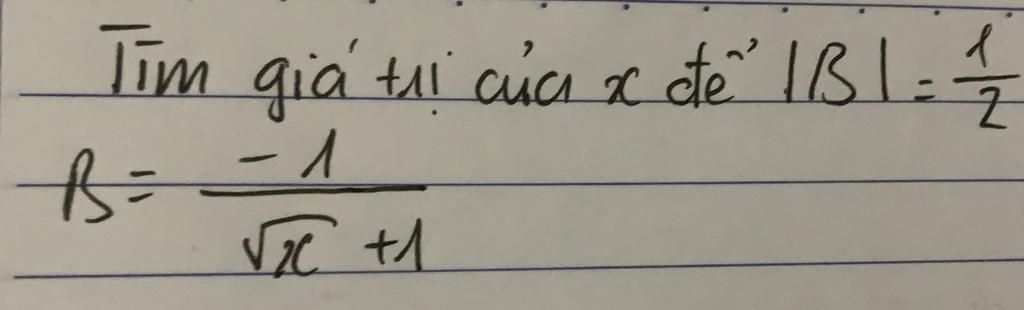 Tìm giá trị của x để |B| = \frac{1}{2}
B = \frac{-1}{\sqrt{x} + 1}